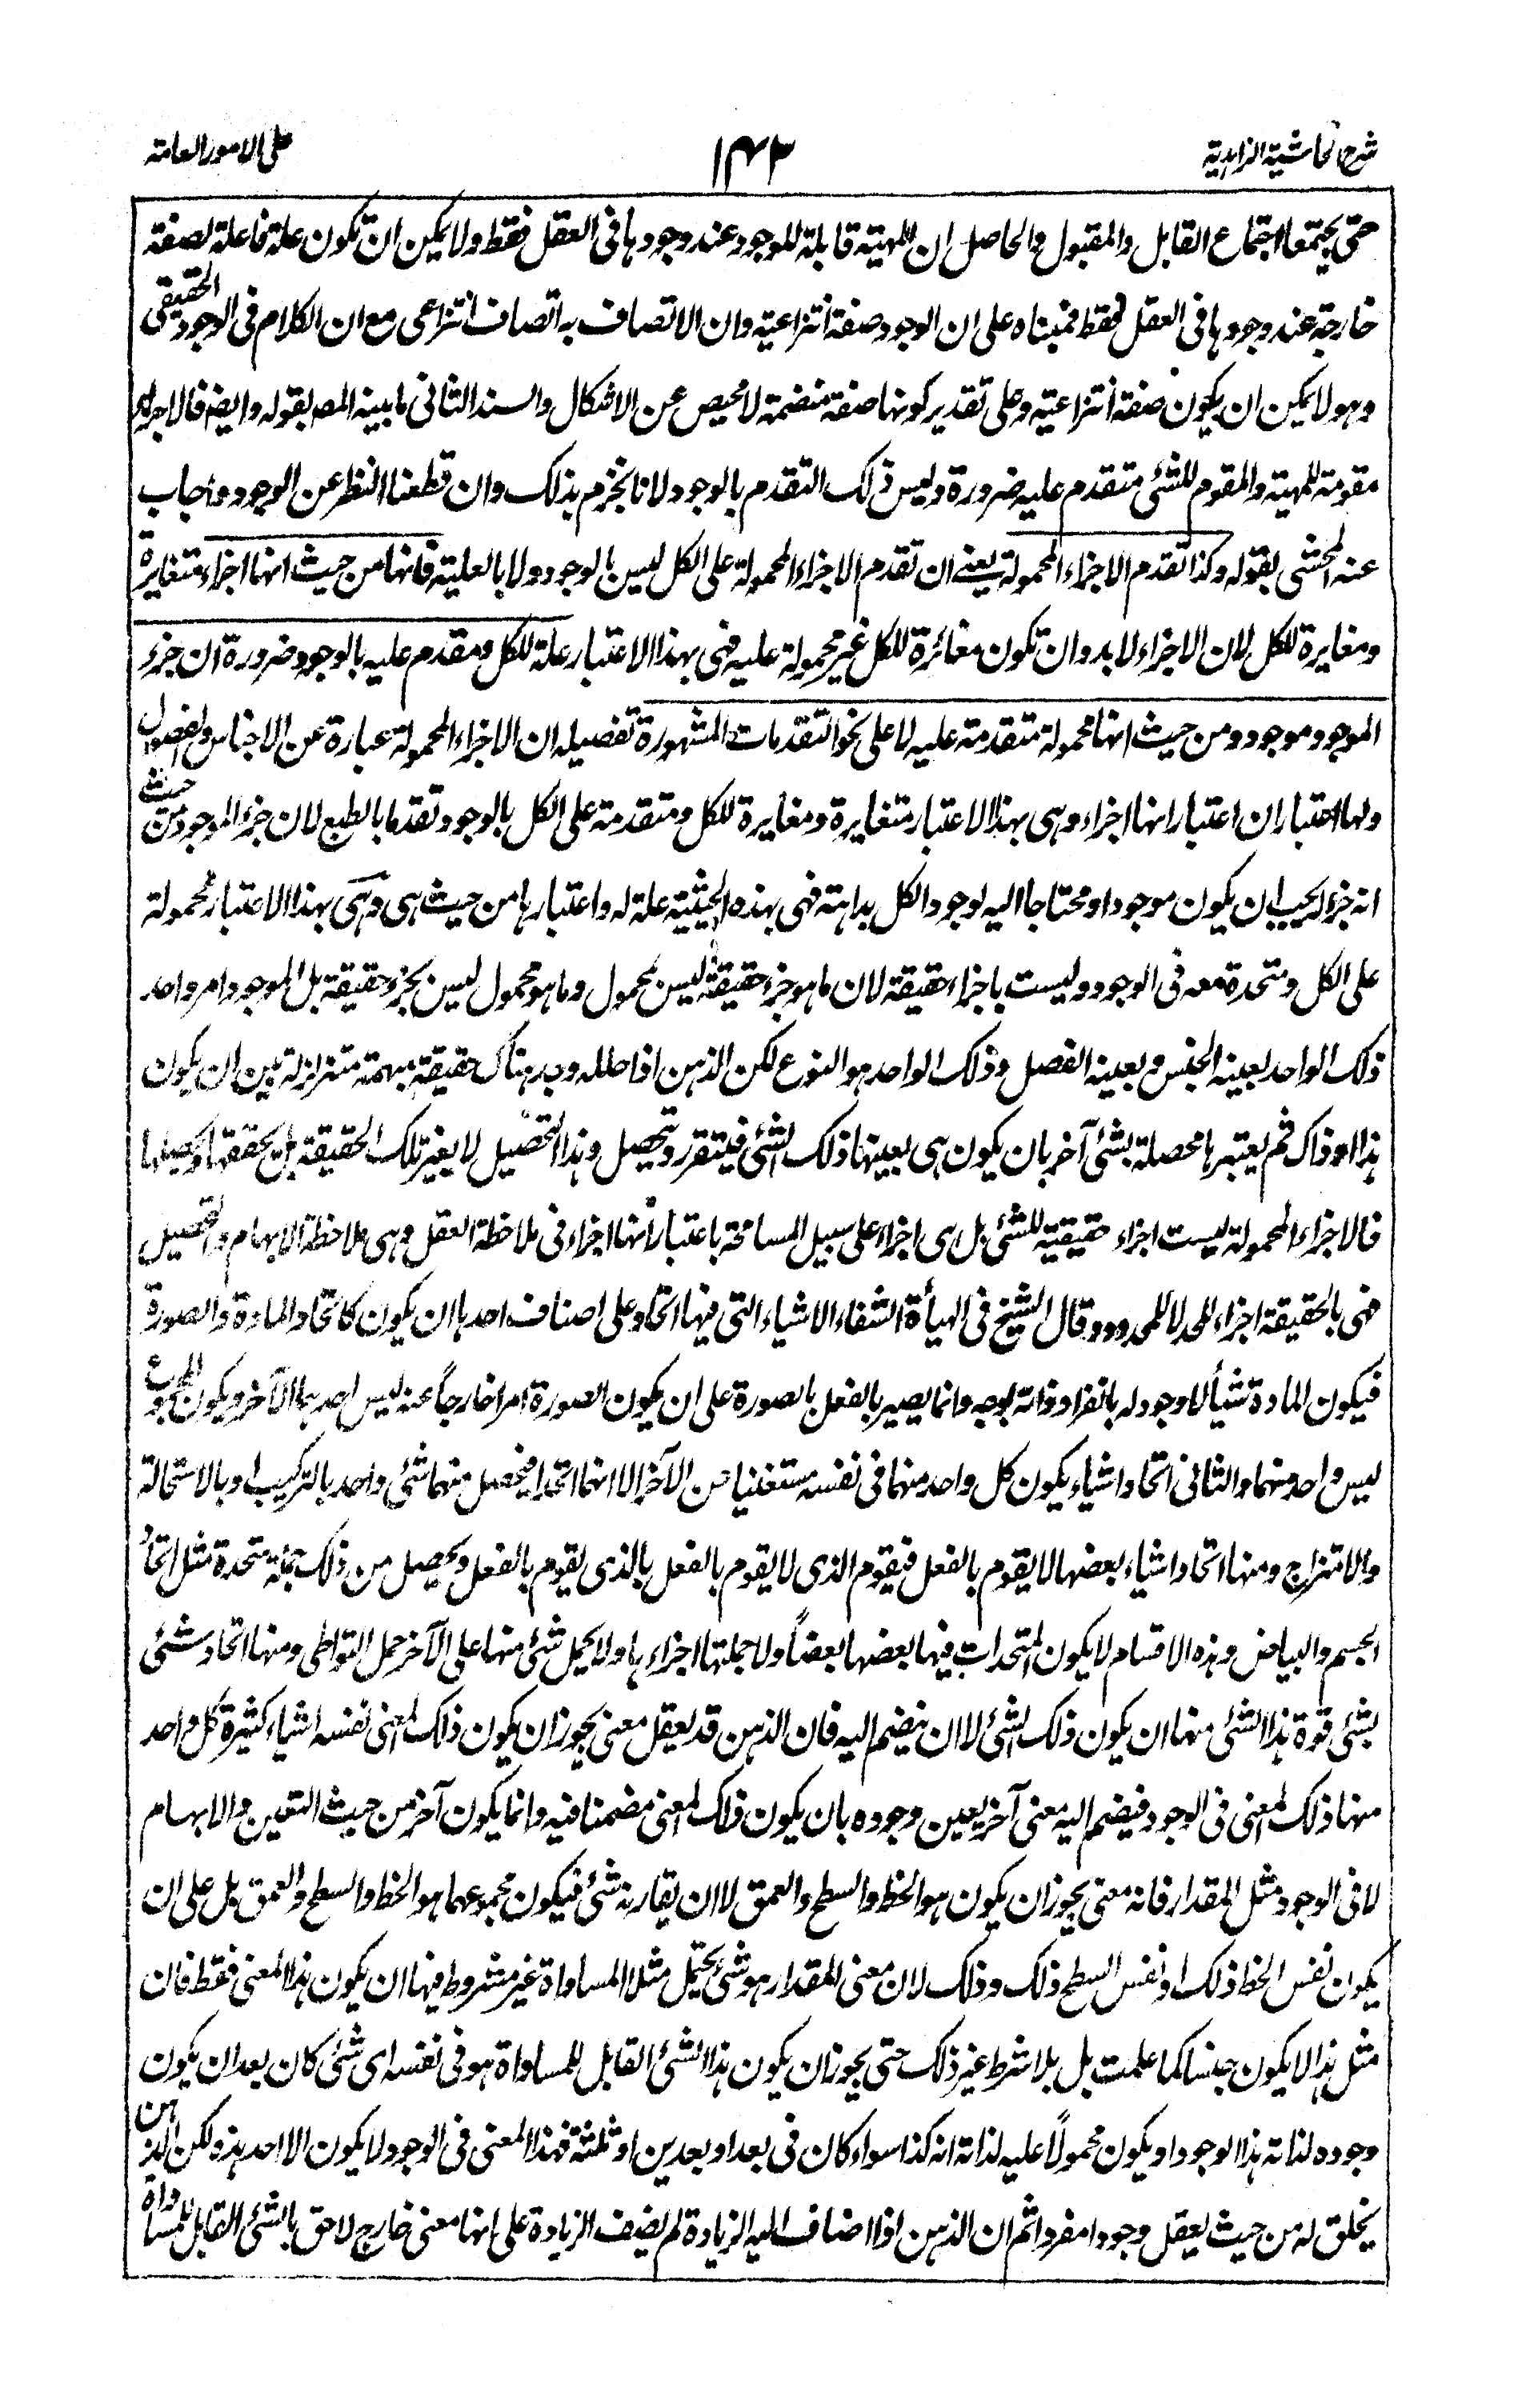 شرح الحاشية الزاهدية
١٤٣
على الامور العامة
حتى يجتمعا اجتماع القابل والمقبول والحاصل ان المهية قابلة للوجود عند وجودها فى العقل فقط ولا يمكن ان تكون علة فاعلة لصفة
خارجة عند وجودها فى العقل فقط فمبناه على ان الوجود صفة انتزاعية وان الاتصاف به اتصاف انتزاعى مع ان الكلام فى الوجود الحقيقى
وهو لا يمكن ان يكون صفة انتزاعية وعلى تقدير كونها صفة منضمة لا محيص عن الاشكال والسند الثانى ما بينه المص بقوله وايضه فالاجزاء
مقومة للمهية والمقوم للشئ متقدم عليه ضرورة وليس ذلك التقدم بالوجود لانا نجزم بذلك وان قطعنا النظر عن الوجود واجاب
عنه المحشى بقوله وكذا تقدم الاجزاء المحمولة يعنى ان تقدم الاجزاء المحمولة على الكل ليس بالوجود ولا بالعلية فانها من حيث انها اجزاء متغايرة
ومغايرة للكل لان الاجزاء لابد وان تكون مغائرة للكل غير محمولة عليه فهى بهذا الاعتبار علة للكل ومقدم عليه بالوجود ضرورة ان جزء
الموجود موجود ومن حيث انها محمولة متقدمة عليه لا على نحو التقدمات المشهورة تفصيله ان الاجزاء المحمولة عبارة عن الاجناس والفصول
ولها اعتباران اعتبار انها اجزاء وهى بهذا الاعتبار متغايرة ومغايرة للكل ومتقدمة على الكل بالوجود تقدما بالطبع لان جزء الموجود من حيث
انه جزء له يجب ان يكون موجودا ومحتاجا اليه لوجود الكل بداهة فهى بهذه الحيثية علة له واعتبارها من حيث هى وهى بهذا الاعتبار محمولة
على الكل ومتحدة معه فى الوجود وليست باجزاء حقيقة لان ما هو جزء حقيقة ليس بمحمول وما هو محمول ليس بجزء حقيقة بل الموجود امر واحد
ذلك الواحد بعينه الجنس وبعينه الفصل وذلك الواحد هو النوع لكن الذهن اذا حلله وجد هناك حقيقة مبهمة متزلزلة بين ان يكون
هذا او ذاك ثم يعتبرها محصلة بشئ آخر بان يكون هى بعينها ذلك الشئ فيتقرر وتحصل وهذا التحصيل لا يغير تلك الحقيقة بل يحققها ويحصلها
فالاجزاء المحمولة ليست اجزاء حقيقية للشئ بل هى اجزاء على سبيل المسامحة باعتبار انها اجزاء فى ملاحظة العقل وهى ملاحظة الابهام والتحصيل
فهى بالحقيقة اجزاء للحد لا للمحدود وقال الشيخ فى الهيأة الشفاء الاشياء التى فيها اتحاد على اصناف احدها ان يكون كاتحاد المادة والصورة
فيكون المادة شيأ لا وجود له بانفراد ذاته بوجه وانما يصير بالفعل بالصورة على ان يكون الصورة امرا خارجاً عنه ليس احدهما الآخر ويكون المجموع
ليس واحد منهما والثانى اتحاد اشياء يكون كل واحد منها فى نفسه مستغنيا عن الآخر الا انها اتحدا فيحصل منها شئ واحد بالتركيب او بالاستحالة
والامتزاج ومنها اتحاد اشياء بعضها لا يقوم بالفعل فيقوم الذى لا يقوم بالفعل بالذى يقوم بالفعل ويحصل من ذلك جملة متحدة مثل اتحاد
الجسم والبياض وهذه الاقسام لا يكون المتحدات فيها بعضها بعضاً ولا جملتها اجزاءها ولا يحمل شئ منها على الآخر حمل التواطى ومنها اتحاد شئ
بشئ قوة هذا الشئ منها ان يكون ذلك الشئ لا ان ينضم اليه فان الذهن قد يعقل معنى يجوز ان يكون ذلك المعنى نفسه اشياء كثيرة كل واحد
منها ذلك المعنى فى الوجود فيضم اليه معنى آخر يعين وجوده بان يكون ذلك المعنى مضمنا فيه وانما يكون آخر من حيث التعين والابهام
لا فى الوجود مثل المقدار فانه معنى يجوز ان يكون هو الخط والسطح والعمق لا ان يقارنه شئ فيكون مجموعهما هو الخط والسطح والعمق بل على ان
يكون نفس الخط ذلك او نفس السطح ذلك وذلك لان معنى المقدار هو شئ يحتمل مثلا المساواة غير مشروط فيها ان يكون هذا المعنى فقط فان
مثل هذا لا يكون جنسا كما علمت بل بلا شرط غير ذلك حتى يجوز ان يكون هذا الشئ القابل للمساواة هو فى نفسه اى شئ كان بعد ان يكون
وجوده لذاته هذا الوجود او يكون محمولاً عليه لذاته انه كذا سواء كان فى بعد او بعدين او ثلثة فهذا المعنى فى الوجود لا يكون الا احد هذه لكن الذهن
يخلق له من حيث يعقل وجودا مفردا ثم ان الذهن اذا اضاف اليه الزيادة لم يضف الزيادة على انها معنى خارج لاحق بالشئ القابل للمساواة